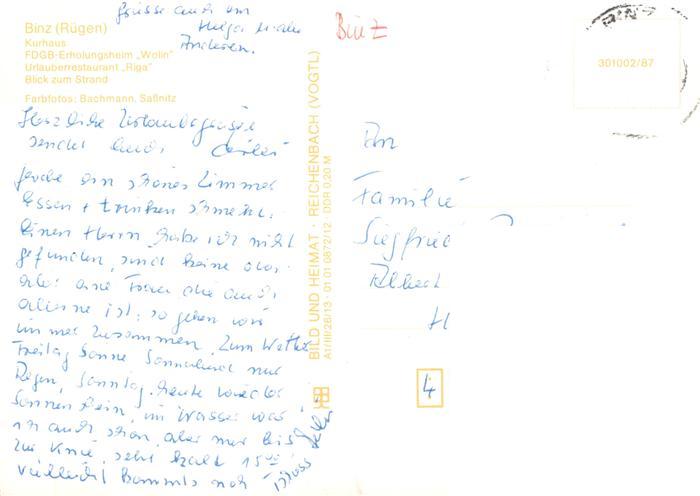 Grüsse auch an
Helga u. alle
Anderen.
Binz
Binz (Rügen)
Kurhaus
FDGB-Erholungsheim „Wolin"
Urlauberrestaurant „Riga"
Blick zum Strand
Farbfotos: Bachmann, Saßnitz
301002/87
BILD UND HEIMAT · REICHENBACH (VOGTL)
A1/III/26/13 · 01 01 0872/12 · DDR 0,20 M
Herzliche Urlaubsgrüße
sendet Euch
habe ein schönes Zimmer
Essen + trinken schmeckt.
Einen Herrn habe ich nicht
gefunden, sind keine da.
aber eine Frau die auch
alleine ist, so gehen wir
immer zusammen. Zum Wetter
Freitag Sonne Sonnabend nur
Regen, Sonntag, heute wieder
Sonnenschein, im Wasser war
ich auch schon, aber nur bis
zur Knie, sehr kalt 15
vielleicht kommts noch
An
Familie
Siegfried
4